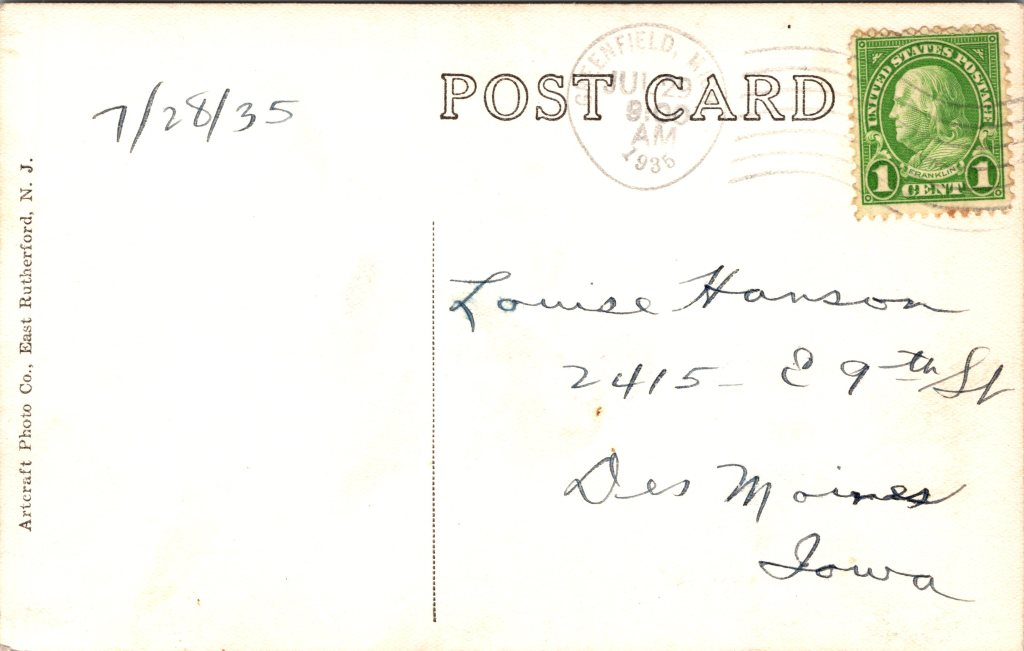 7/28/35
POST CARD
GREENFIELD,
JUL 29
9:00
AM
1935
UNITED STATES POSTAGE
FRANKLIN
1 CENT 1
Louise Hanson
2415- E 9th St
Des Moines
Iowa
Artcraft Photo Co., East Rutherford, N. J.